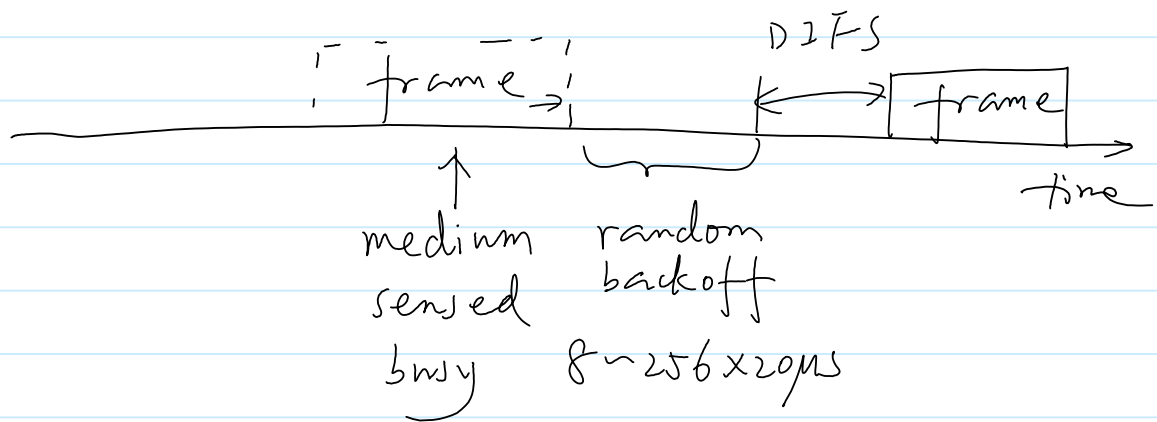 DIFS
frame
frame
time
medium
sensed
busy
random
backoff
8~256×20μs